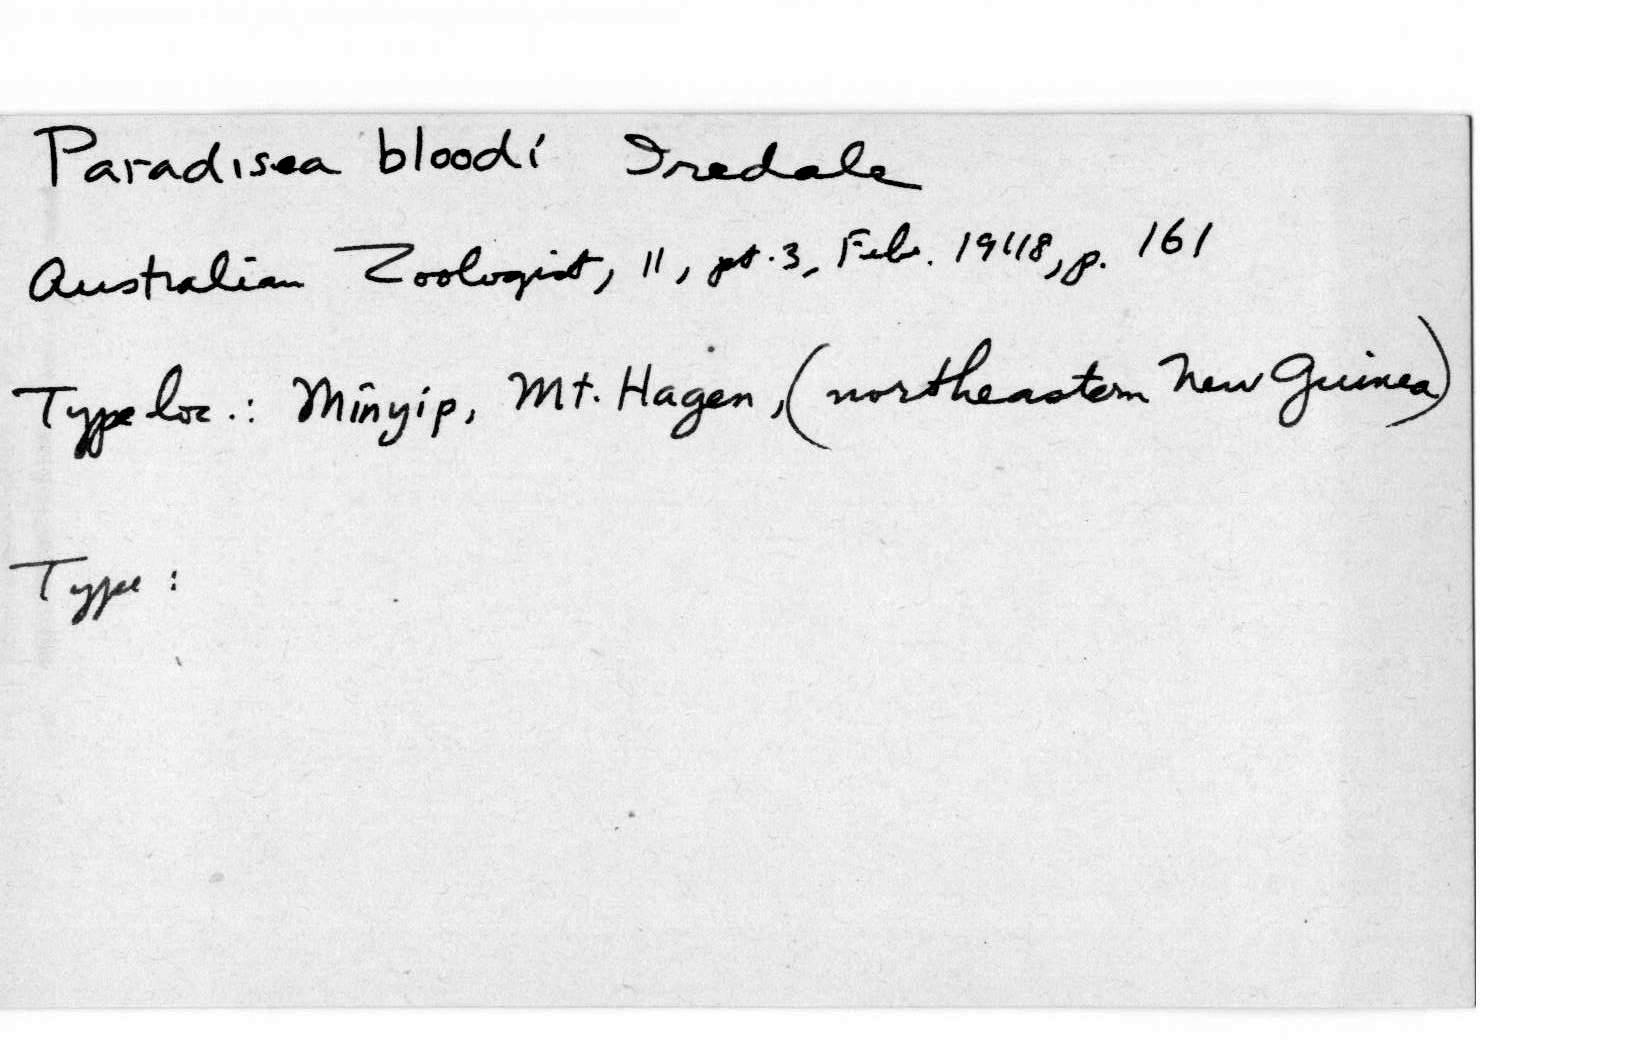 Paradisea bloodi Iredale
Australian Zoologist, 11, pt. 3, Feb. 1948, p. 161
Type loc.: Minyip, Mt. Hagen, (northeastern New Guinea)
Type: